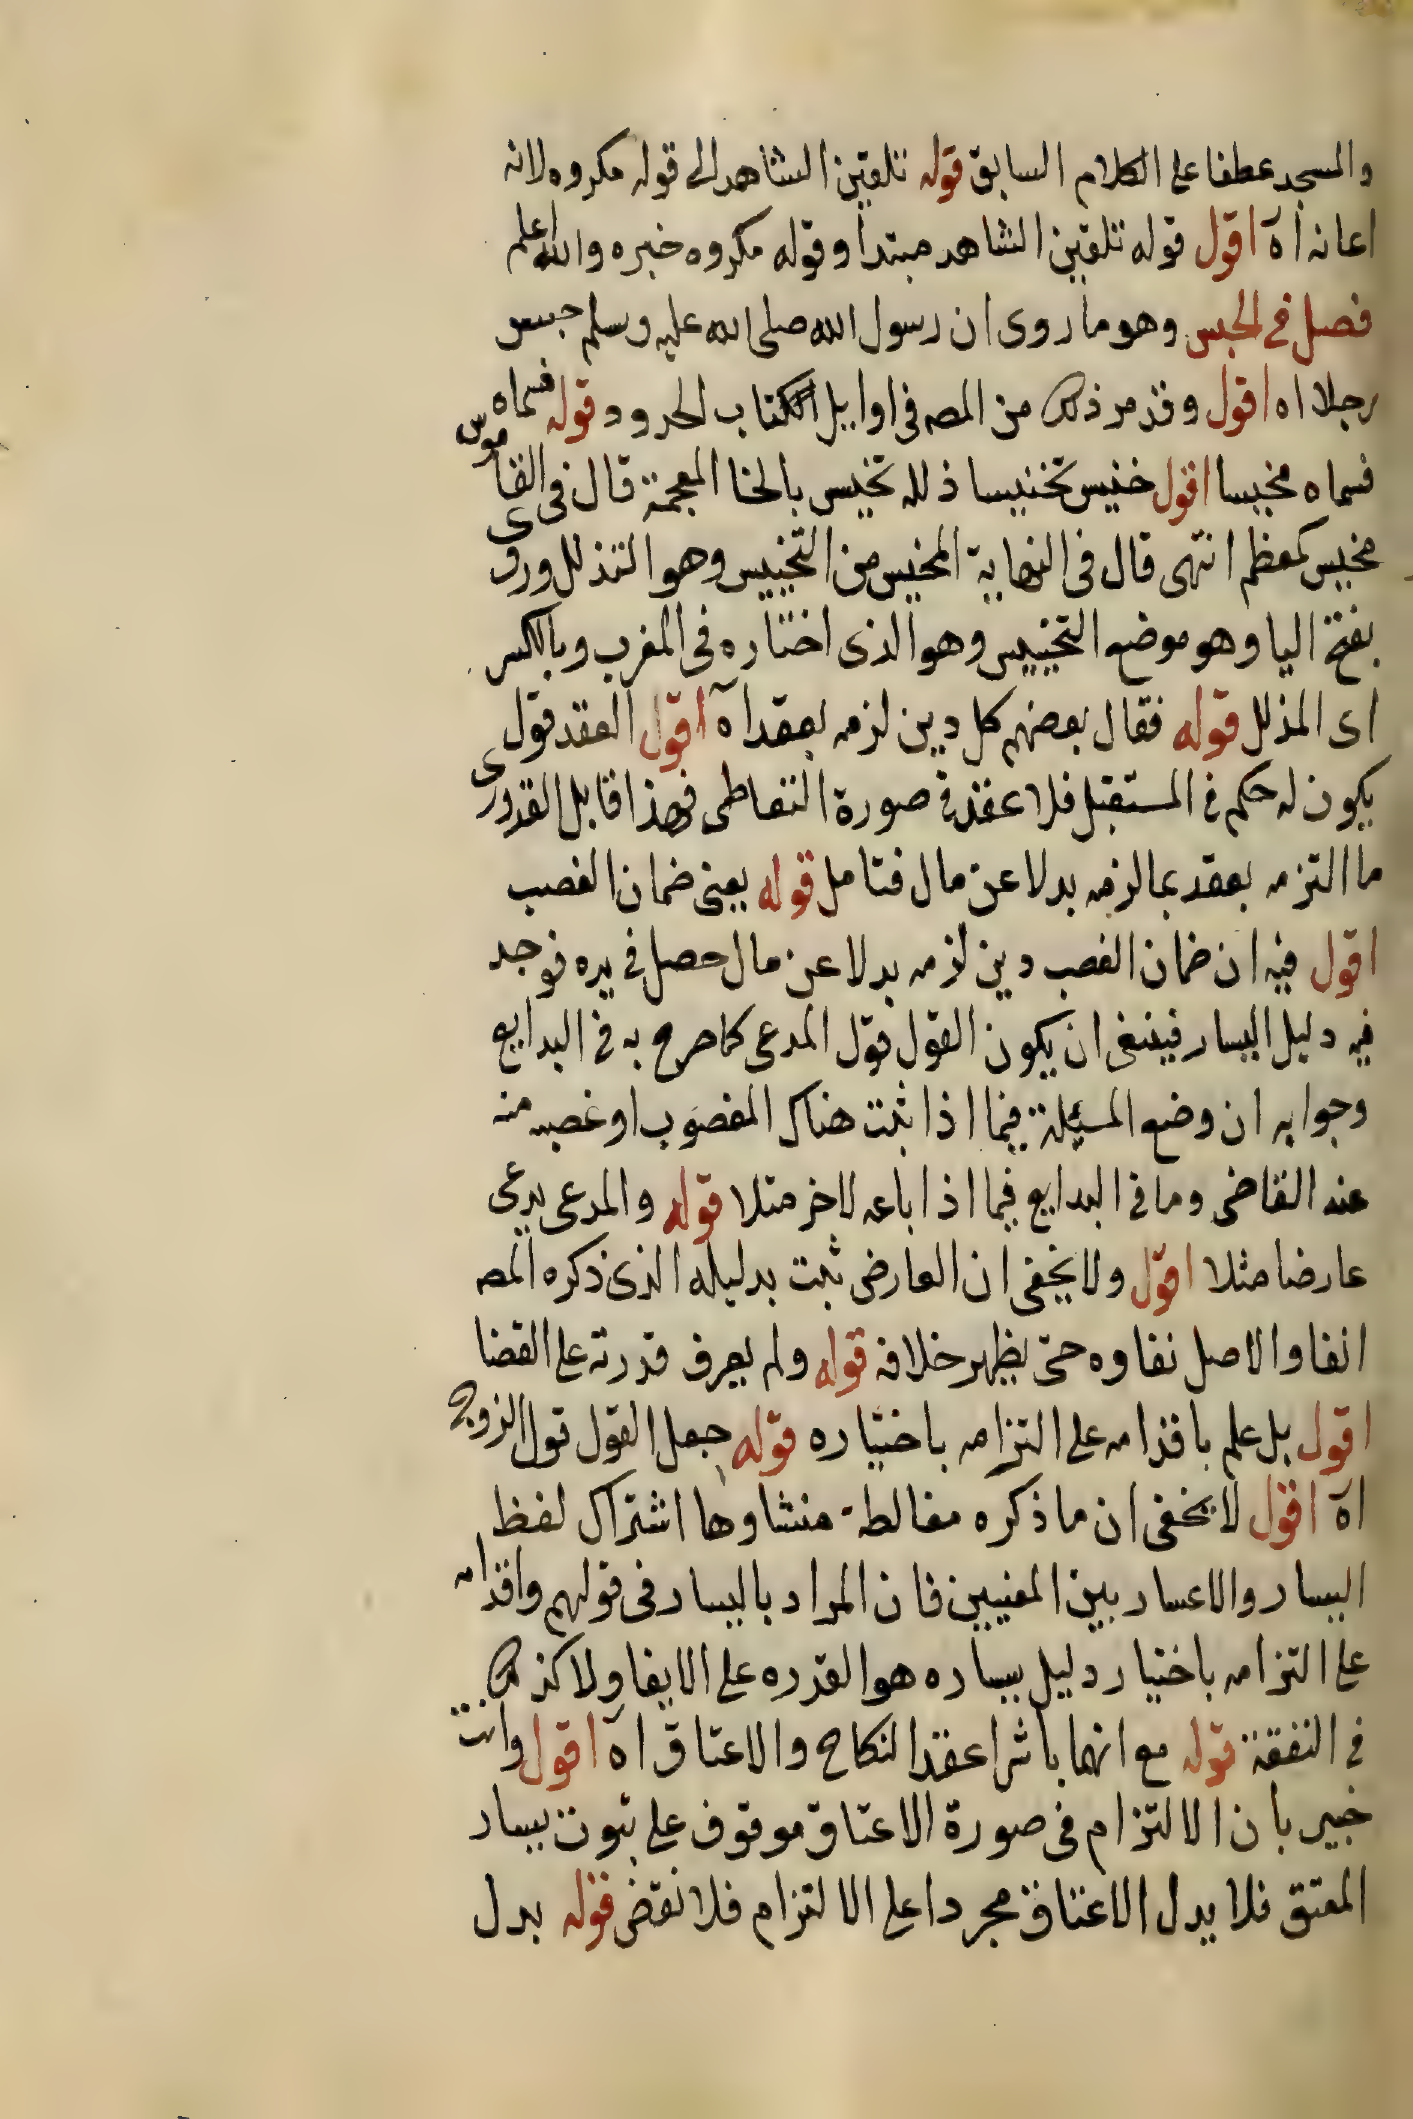 والمسجد عطفا على الكلام السابق قوله تلقين الشاهد الى قوله مكروه لانه
اعانه اه اقول قوله تلقين الشاهد مبتدا وقوله مكروه خبره والله اعلم
فصل فى الحبس وهو ما روى ان رسول الله صلى الله عليه وسلم حبس
رجلا اه اقول وقد مر ذلك من المصه فى اوايل الكتاب الحدود قوله فسماه
فسماه مخيسا اقول خنيس تخنيسا ذلله تخيس بالخا المعجمة قال فى القاموس
مخيس كمعظم انتهى قال فى النهاية المخيس من التخييس وهو التذلل وروى
بفتح اليا وهو موضع التخييس وهو الذى اختاره فى المغرب وبالكسر
اى المذلل قوله فقال بعضهم كل دين لزمه بعقد اه اقول العقد قول
يكون له حكم فى المستقبل فلا عقد فى صورة التعاطى فهذا قابل القدورى
ما التزمه بعقد بما لزمه بدلا عن مال فتامل قوله يعنى ضمان الغصب
اقول فيه ان ضمان الغصب دين لزمه بدلا عن مال حصل فى يده فوجد
فيه دليل اليسار فينبغى ان يكون القول قول المدعى كما صرح به فى البدايع
وجوابه ان وضع المسئلة فيما اذا ثبت هناك المغصوب او غصبه منه
عند القاضى وما فى البدايع فيما اذا باعه لاخر مثلا قوله والمدعى يدعى
عارضا مثلا اقول ولا يخفى ان العارض ثبت بدليله الذى ذكره المصه
انفا والاصل نفاوه حتى يظهر خلافه قوله ولم يعرف قدرته على القضا
اقول بل علم باقدامه على التزامه باختياره قوله جعل القول قول الزوج
اه اقول لا يخفى ان ما ذكره مغالطة منشاوها اشتراك لفظ
اليسار والاعسار بين المعنيين فان المراد باليسار فى قولهم واقدامه
على التزامه باختيار دليل يساره هو القدره على الايفا ولا كذلك
فى النفقة قوله مع انهما باشرا عقد النكاح والاعتاق اه اقول وانت
خبير بان الالتزام فى صورة الاعتاق موقوف على ثبوت يسار
المعتق فلا يدل الاعتاق مجردا على الالتزام فلا نقض قوله بدل